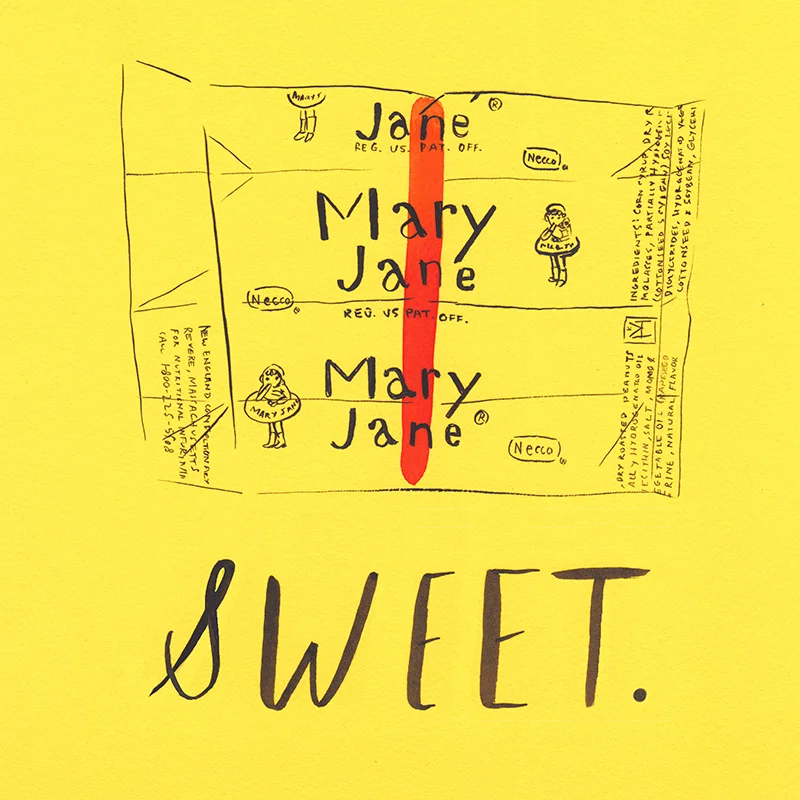 MARYS
Jane®
REG. US. PAT. OFF.
Necco®
Mary
Jane
Necco®
REG. US PAT. OFF.
Mary
Jane®
MARY JANE
Necco®
NEW ENGLAND CONFECTIONARY
REVERE, MASSACHUSETTS
FOR NUTRITIONAL
CALL 1-800-225-5508
INGREDIENTS: CORN SYRUP, DRY R
MOLASSES, PARTIALLY HYDROGEN
(COTTONSEED SOYBEAN) SOY LECI
DIGLYCERIDES, HYDROGENATED
COTTONSEED & SOYBEAN, GLYCERI
DRY ROASTED PEANUTS
ALLY HYDROGENATED OIL
LECITHIN, SALT, MONO &
EGETABLE OIL (RAPESEED
RINE, NATURAL FLAVOR
SWEET.